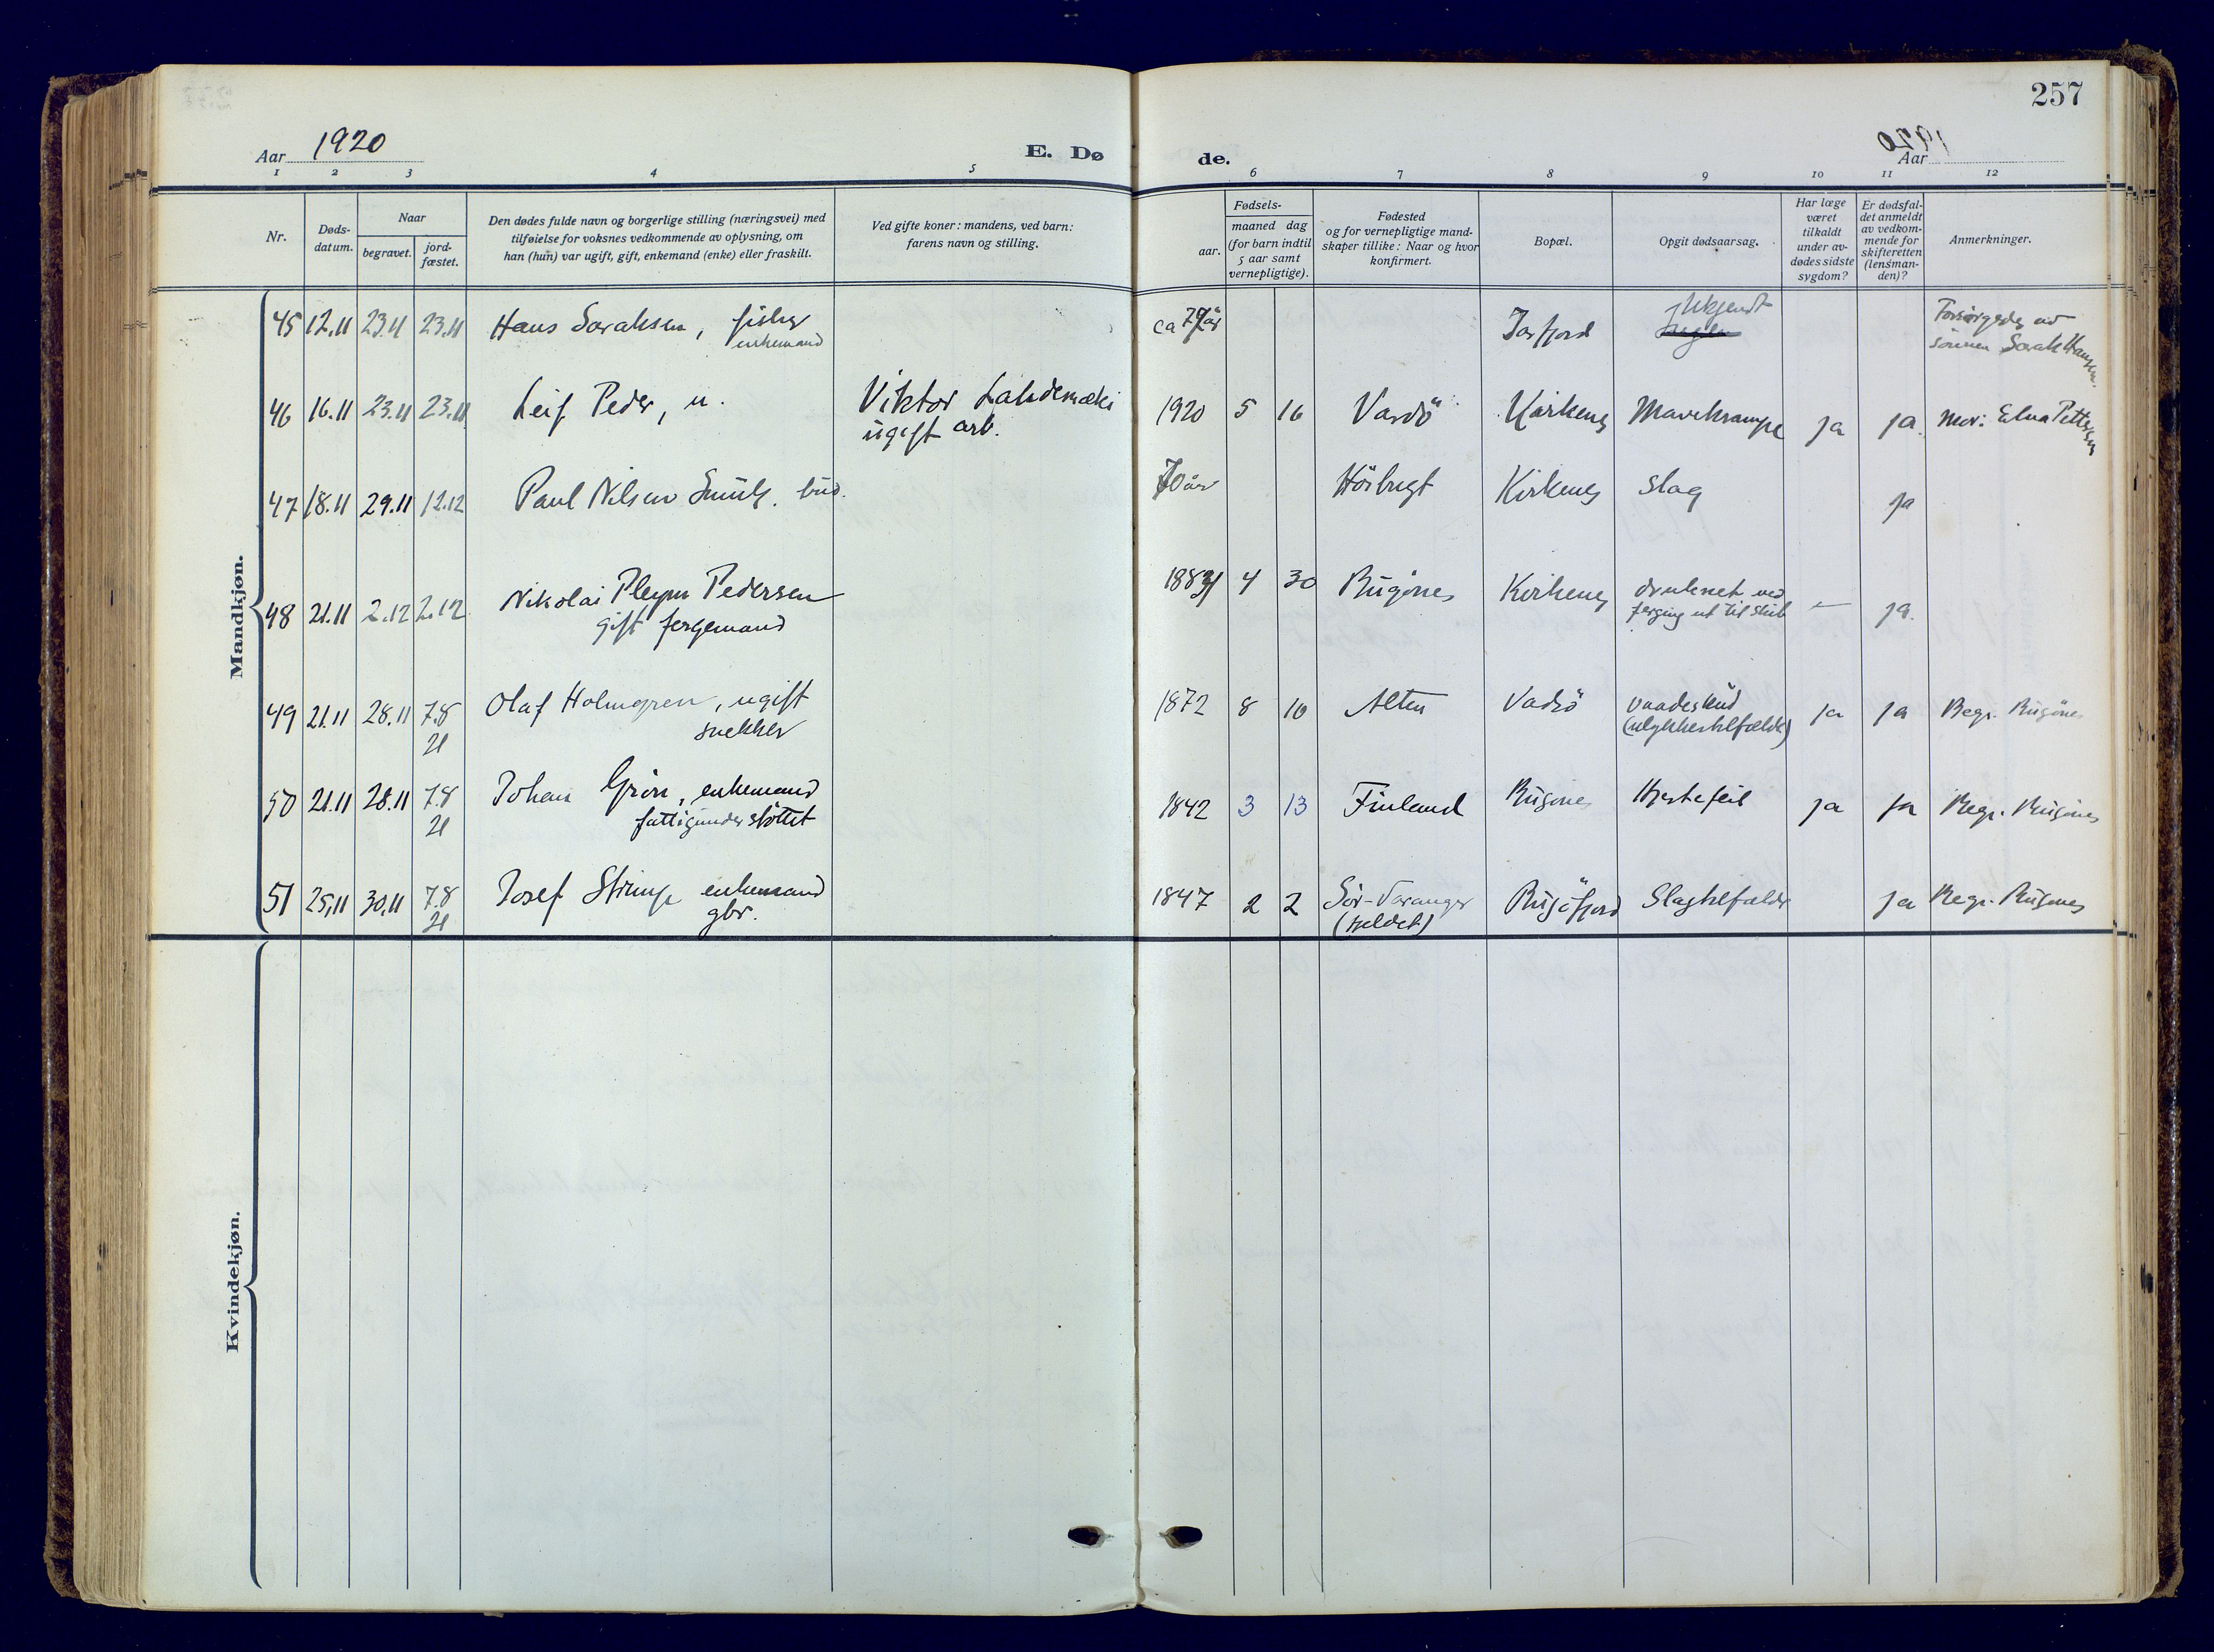 257
Aar 1920
E. Dø
de.
Aar 1920
1 2 3 4 5 6 7 8 9 10 11 12
Nr.
Døds-
datum.
Naar
begravet.
jord-
fæstet.
Den dødes fulde navn og borgerlige stilling (næringsvei) med
tilføielse for voksnes vedkommende av oplysning, om
han (hun) var ugift, gift, enkemand (enke) eller fraskilt.
Ved gifte koner: mandens, ved barn:
farens navn og stilling.
Fødsels-
aar.
maaned dag
(for barn indtil
5 aar samt
vernepligtige).
Fødested
og for vernepligtige mand-
skaper tillike: Naar og hvor
konfirmert.
Bopæl.
Opgit dødsaarsag.
Har læge
været
tilkaldt
under av-
dødes sidste
sygdom?
Er dødsfal-
det anmeldt
av vedkom-
mende for
skifteretten
(lensman-
den)?
Anmerkninger.
Mandkjøn.
45 12.11 23.11 23.11 Hans Saraksen, fisker
enkemand
ca 79 år Jarfjord
Ukjendt
Forsørgedes av
sønnen Sarak Hansen.
46 16.11 23.11 23.11 Leif Peder, u. Viktor Lahdemæki
ugift arb.
1920 5 16 Vardö Kirkenes Mavekrampe ja ja. Mor: Elna Pettersen
47 18.11 29.11 12.12 Paul Nilsen
70 år Kirkenes Slag ja
48 21.11 2.12 2.12 Nikolai Pleym Pedersen
gift fergemand
1883 4 30 Bugönes Kirkenes druknet ved
ferging ut til skib
— ja.
49 21.11 28.11 7.8
21
Olaf Holmgren, ugift
snekker
1872 8 10 Alten Vadsö vaadeskud
(ulykkestilfælde)
ja ja Begr. Bugönes
50 21.11 28.11 7.8
21
Johan Grön, enkemand
fattigunderstöttet
1842 3 13 Finland Bugönes Hjertefeil ja ja Begr. Bugönes
51 25.11 30.11 7.8
21
Josef Strimp enkemand
gbr.
1847 2 2 Sör-Varanger
Bugöfjord Slagtilfælde ja Begr. Bugönes
Kvindekjøn.